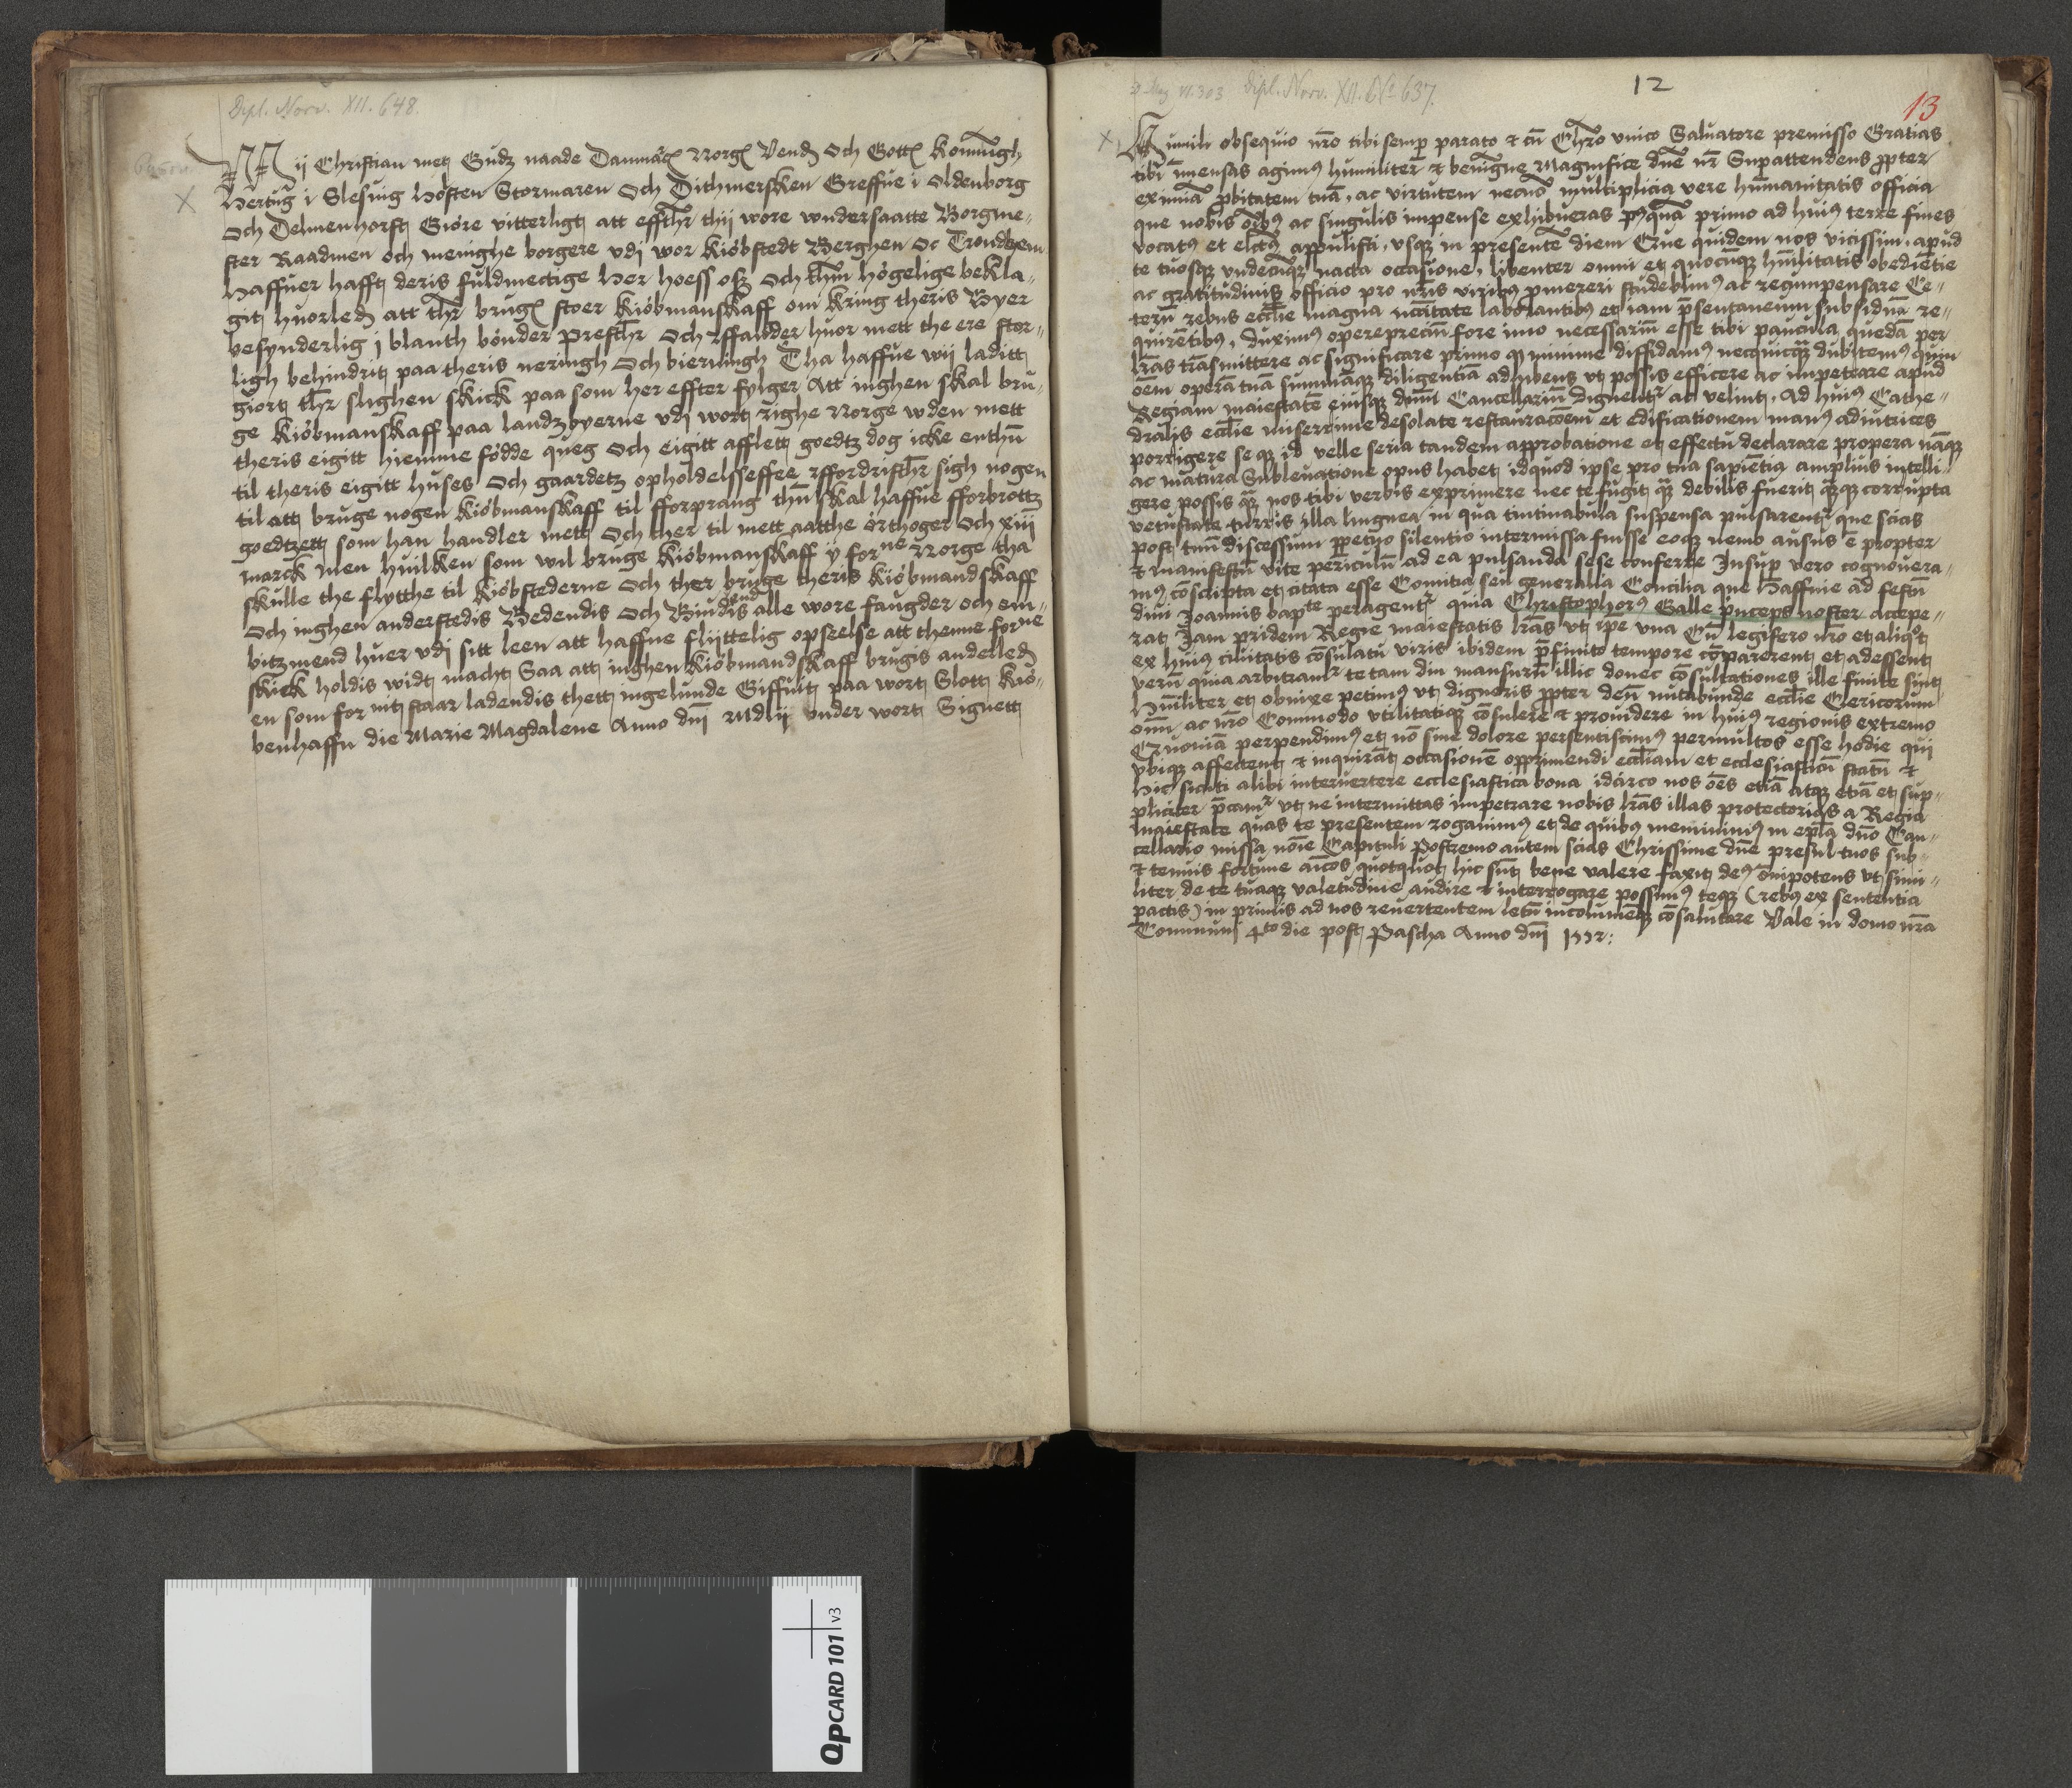 Dipl. Norv. XII. 648.
Wij Christian mett Gudz naade Danmarck Norge Vend och Gotte Konningh
Hertug i Slesuig Holsten Stormaren och Dithmersken Greffue i Oldenborg
och Delmenhorst Giøre vitterligt att effther thij wore wndersaatte Borgme-
ster Raadmen och menighe borgere vdj wor Kiøbstedt Berghen oc Trondhem
Haffuer hafft deris fuldmectige Her hoess oss och them høgelige bekla-
git huorled att ther bruges stoer Kiøbmanskaff om kring theris Byer
besynderlig j blanth bønder Presther och Affander huor mett the ere stor-
ligh behindrit paa theris neringh och bieringh Tha haffue wij laditt
giort ther slighen skick paa som her effter fylger Att inghen skal bru-
ge Kiøbmanskaff paa landzbyerne vdj wort righe Norge wden mett
theris eigitt hiemme fødde queg och eigitt afflett goedtz dog icke enthen
til theris eigitt huses och gaardetz opholdelsse effter fordristher sigh nogen
til att bruge nogen Kiøbmanskaff til fforprang then skal haffue fforbrott
goedtzett som han handler mett och ther til mett aatthe örthoger och xiij
marck Men huilken som wil bruge Kiøbmanskaff ÿ forne Norge tha
skulle the flytthe til Kiøbstederne och ther bruge theris Kiøbmandskaff
och inghen anderstedis Bedendis och Biudendis alle wore faugder och em-
bitzmend huer vdj sitt leen att haffue flÿttelig opseelse att thenne forne
skick holdis widt macht Saa att inghen Kiøbmandskaff brugis anderled
en som for mt staar ladendis thett ingelunde Giffuit paa wort Slott Kiø-
benhaffn die Marie Magdalene Anno dnj Mdlij vnder wort Signett
Dipl. Norv. XII. No 637.
12
13
Humili obsequio nro tibi semp parato et cū Chro vnico Saluatore premisso Gratias
tibi imensas agimus humiliter et benigne Magnifice dne nr Supattendens ppter
eximiā pbitatem tuā, ac virtutem necnō multiplicia vere humanitatis officia
que nobis oibus ac singulis impense exhibueras posquā primo ad huius terre fines
vocatus et electus appulisti, vsque in presentē diem Que quidem nos vicissim, apud
te tuosque vndecunque nacta occasione, libenter omni et quocunque humilitatis obediētie
ac gratitudinis officio pro nris viribus pmereri studebimus ac recumpensare Ce-
terū rebus ecclie magna necitate laborantibus et iam psentaneum subsidiū re-
quirētibus, duximus opereprecium fore imo necessarium esse tibi paucula quedā per
lras trāsmittere ac significare primo quod minime diffidamus necquicquam dubitemus quin
oēm operā tuā summāque diligentiā adhibens vt possis efficere ac impetrare apud
Regiam maiestatē eiusque dnm Cancellariū dignetur ac velint, Ad huius Cathe-
dralis ecclie miserrime desolate restauracoem et edificationem manus adiutrices
porrigere seque id velle seria tandem approbatione et effectu declarare propera nāque
ac matura Subleuatione opus habet idquod ipse pro tua sapiētia amplius intelli-
gere possis quam nos tibi verbis exprimere nec te fugit quam debilis fuerit quamque corrupta
vetustate turris illa lingnea in qua tintinabula suspensa pulsarentur que scias
post tuū discessum ppetuo silentio intermissa fuisse eoque nemo ausus ē propter
et manifestū vite periculū ad ea pulsanda sese conferre Insup vero cognouera-
mus cōscripta et citata esse Comitia seu generalia Concilia que Haffnie ad festū
diui Joannis bapte peragentur quia Christophorus Galle pnceps noster accepe-
rat Jam pridem Regie maiestatis lras vt ipe vna Cū legifero nro et aliquot
ex huius ciuitatis cōsulatu viris ibidem pfinito tempore cōparerent et adessent
verū quia arbitramur te tam diu mansurū illic donec cōsultationes ille finite sint
Humiliter et obnixe petimus vt digneris ppter deū nutabunde ecclie Clericorum
oīm ac nro Commodo vtilitatique cōsulere et prouidere in huius regionis extremo
Quoniā perpendimus et nō sine dolore persentiscimus permultos esse hodie qui
vbique affectent et inquirāt occasionē opprimendi eccliam et ecclesiasticū statū et
hic sicuti alibi interuertere ecclesiastica bona idcirco nos oēs etiā atque etiā et sup-
pliciter pcamur vt ne intermittas impetrare nobis lras illas protectorias a Regia
maiestate quas te presentem rogauimus et de quibus meminimus in epla dno Can-
cellario missa noīe Capituli Postremo autem scias Chrissime dne presul tuos sub-
et tenuis fortune aīcos quotquot hic sūt bene valere faxit deus oīpotens vt simi-
liter de te tuaque valetudine audire et interrogare possimus teque (rebus ex sententia
pactis) in primis ad nos reuertentem letū incolumēque cōsalutare Vale in domo nra
Communi 4to die post Pascha Anno dni 1552: